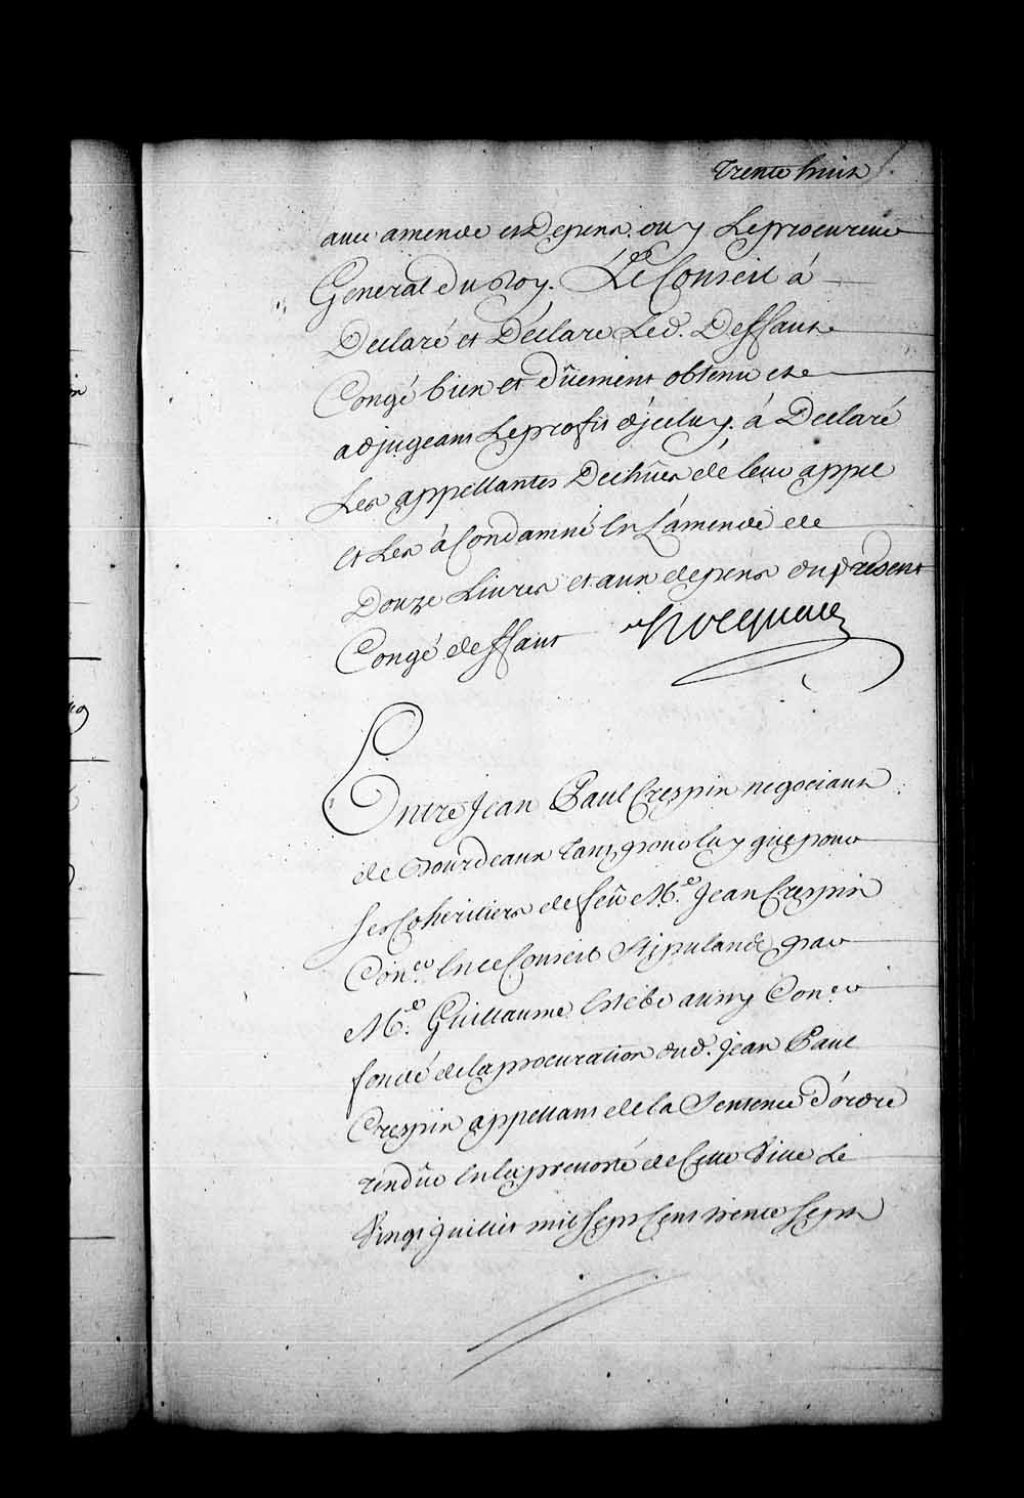 Trente huit
avec amende et Depens. ouy Le procureur
General Du Roy. Le Conseil à
Declaré et Déclare Led. Deffaut
Congé bien et dûement obtenu et
adjugeant Le profit d'jceluy. à Declaré
Les appellantes Dechûes de leur appel
et Les à Condamné En L'amende de
Douze Livres et aux depens du présent
Congé deffaut Hocquart
Entre Jean Paul Crespin negociant
de Bourdeaux tant pour luy que pour
ses Coheritiers de feû Me. Jean Crespin
Coner. En ce Conseil Stipulande par
Me. Guillaume Estèbe aussy Coner
fondé de la procuration dud. Jean Paul
Crespin appellant de la Sentence d'ordre
rendûe En la prevosté de Cette Ville Le
Vingt juillet mil Sept Cent trente Sept